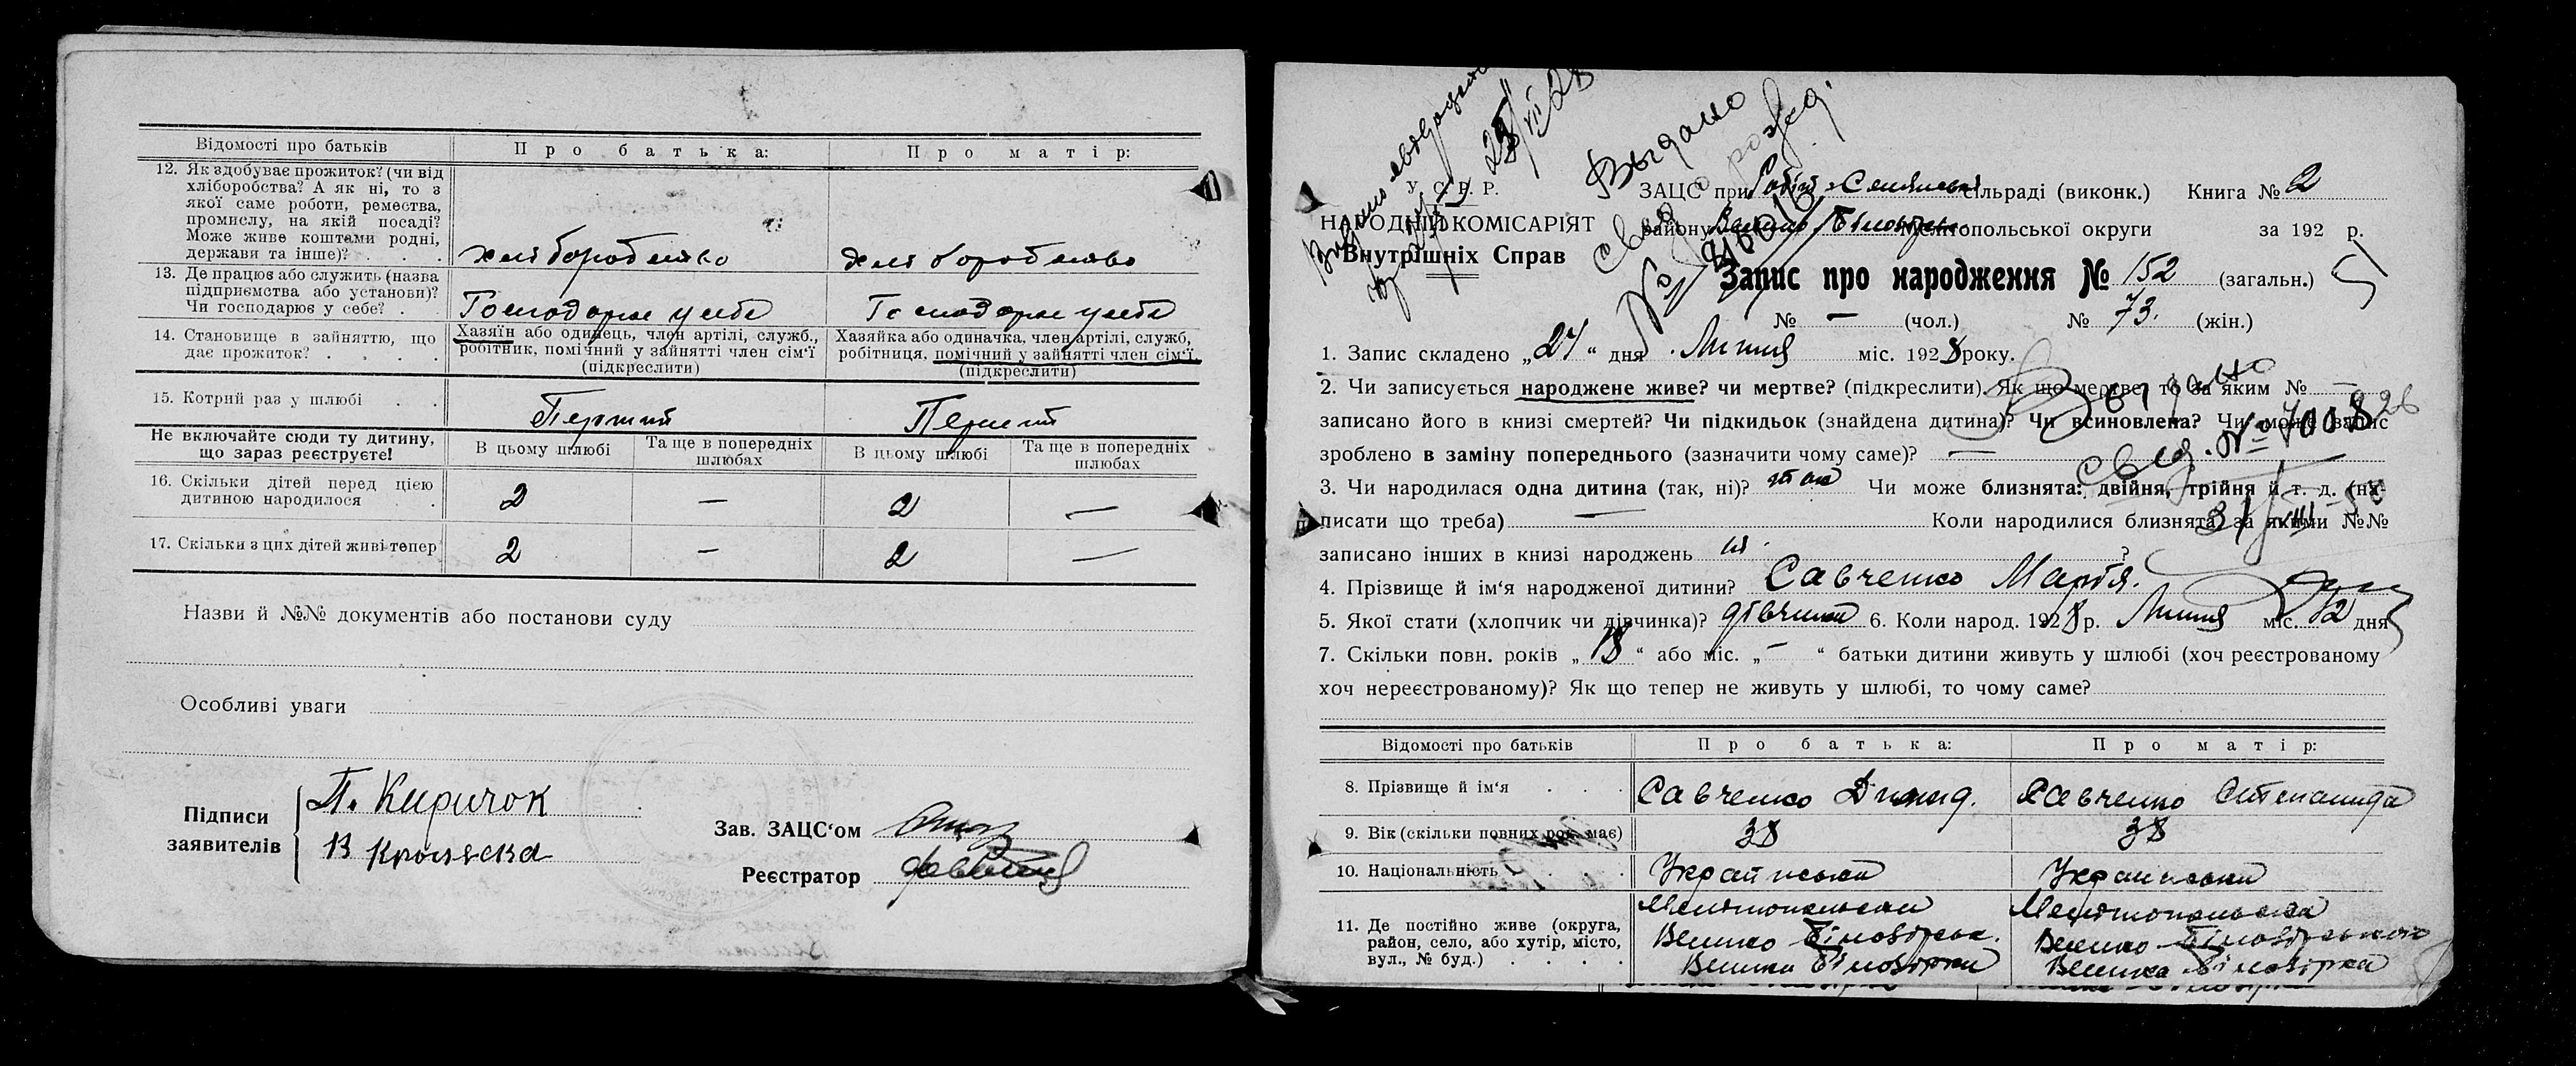 Відомості про батьків
Про батька:
Про матір:
12. Як здобуває прожиток? (чи від
хліборобства? А як ні, то з
якої саме роботи, ремества,
промислу, на якій посаді?
Може живе коштами родні,
держави та інше)? . . .
хліборобство
хліборобство
13. Де працює або служить (назва
підприємства або установи)?
Чи господарює у себе? .
Господарює у себе
Господарює у себе
14. Становище в зайняттю, що
дає прожиток? . . . .
Хазяїн або одинець, член артілі, служб.,
робітник, помічний у зайнятті член сім'ї
(підкреслити)
Хазяйка або одиначка, член артілі, служб,
робітниця, помічний у зайнятті член сім'ї
(підкреслити)
15. Котрий раз у шлюбі . .
Перший
Перший
Не включайте сюди ту дитину,
що зараз реєструєте!
В цьому шлюбі
Та ще в попередніх
шлюбах
В цьому шлюбі
Та ще в попередніх
шлюбах
16. Скільки дітей перед цією
дитиною народилося . .
2 — 2 —
17. Скільки з цих дітей живі тепер
2 — 2 —
Назви й №№ документів або постанови суду
Особливі уваги
Підписи
заявителів
П. Киричок
В Кролевска
Зав. ЗАЦС'ом
Реєстратор
Видано
28/VII 28
Выдано
свид. о рожд.
У. С. Р. Р.
НАРОДНІЙ КОМІСАРІЯТ
Внутрішніх Справ
ЗАЦС при сільраді (виконк.) Книга № 2
району Велико Білозірськ. Мелітопольської округи за 192 р.
Запис про народження № 152 (загальн.)
№ — (чол.) № 73. (жін.)
1. Запис складено „27“ дня Липня міс. 1928 року.
2. Чи записується народжене живе? чи мертве? (підкреслити). Як що мертве, то за яким № —
записано його в книзі смертей? Чи підкидьок (знайдена дитина)? Чи всиновлена? Чи може запис
зроблено в заміну попереднього (зазначити чому саме)? —
Выдано
свид. №
3. Чи народилася одна дитина (так, ні)? так Чи може близнята: двійня, трійня й т. д. (на-
писати що треба) — Коли народилися близнята, за якими №№
записано інших в книзі народжень ?
4. Прізвище й ім'я народженої дитини? Савченко Марія.
5. Якої стати (хлопчик чи дівчинка)? дівчинка 6. Коли народ. 1928 р. Липня міс. 12 дня
7. Скільки повн. років „18“ або міс. „—“ батьки дитини живуть у шлюбі (хоч реєстрованому
хоч нереєстрованому)? Як що тепер не живуть у шлюбі, то чому саме?
Відомості про батьків
Про батька:
Про матір:
8. Прізвище й ім'я . . .
Савченко
Савченко Степанида
9. Вік (скільки повних рок. має)
38
38
10. Національність . . .
Українська
Українська
11. Де постійно живе (округа,
район, село, або хутір, місто,
вул., № буд.) . . . .
Мелітопольська
Велико Білозірськ.
Велика Білозірка
Мелітопольська
Велико Білозірського
Велика Білозірка